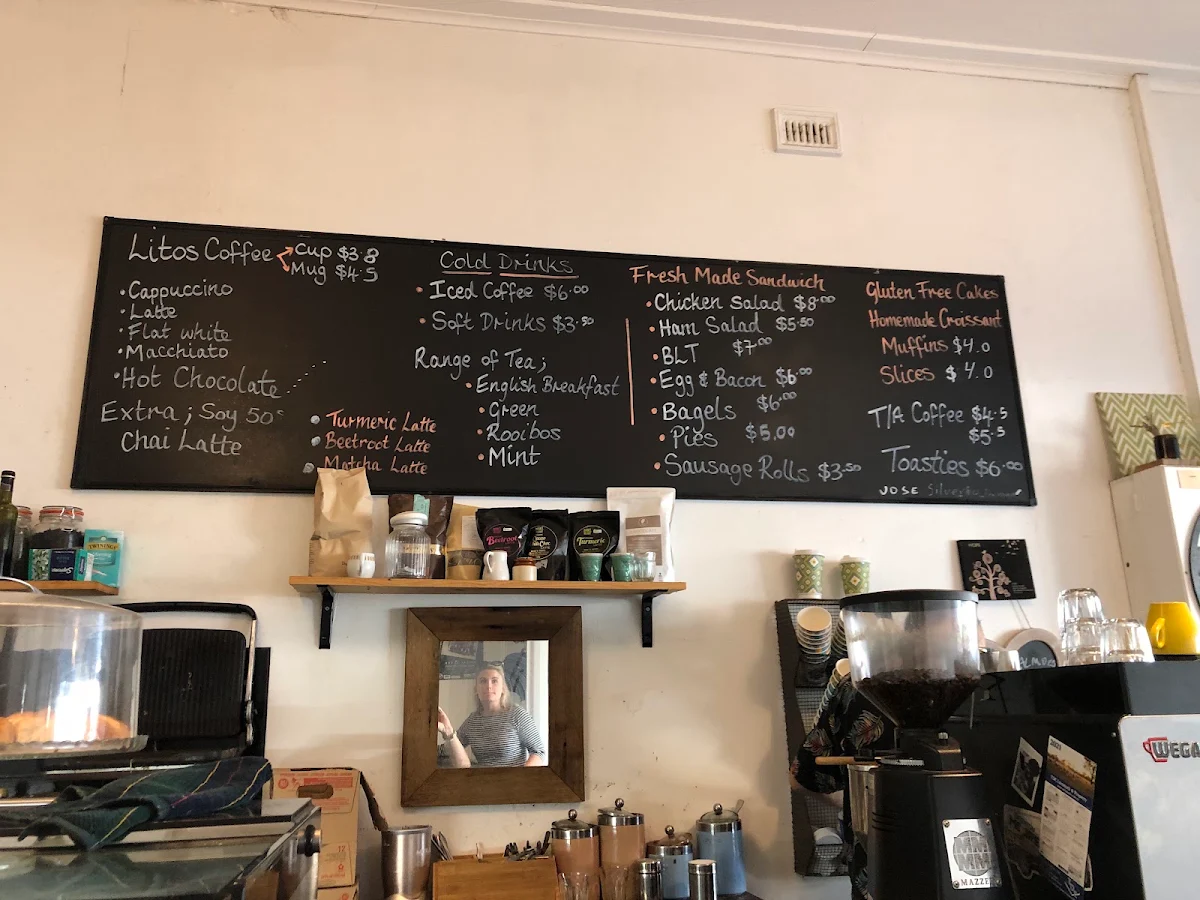 Litos Coffee
Cup $3.8
Mug $4.5
• Cappuccino
• Latte
• Flat white
• Macchiato
• Hot Chocolate
Extra; Soy 50c
Chai Latte
• Turmeric Latte
• Beetroot Latte
• Matcha Latte
Cold Drinks
• Iced Coffee $6.00
• Soft Drinks $3.50
Range of Tea;
• English Breakfast
• Green
• Rooibos
• Mint
Fresh Made Sandwich
• Chicken Salad $8.00
• Ham Salad $5.50
• BLT $7.00
• Egg & Bacon $6.00
• Bagels $6.00
• Pies $5.00
• Sausage Rolls $3.50
Gluten Free Cakes
Homemade Croissant
Muffins $4.0
Slices $4.0
T/A Coffee $4.5
$5.5
Toasties $6.00
JOSE
TWININGS
Beetroot
Turmeric
12
MAZZER
WEGA